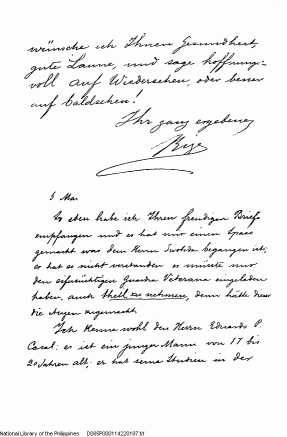 wünsche ich Ihnen Gesundheit,
gute Laune, und sage hoffnungs-
voll auf Wiedersehen, oder besser
auf baldsehen!
Ihr ganz ergebener
Rizal
5 Mai
So eben habe ich Ihren freudigen Brief
empfangen und es hat mir einen Spass
gemacht was dem Herrn begangen ist;
er hat es nicht verstanden es müsste nur
den eifersüchtigen Guardia Veterana eingeladen
haben, auch theil zu nehmen, denn hätte dieser
die Augen zugemacht.
Ich kenne wohl den Herrn Eduardo P
Casal: es ist ein junger Mann von 17 bis
20 Jahren alt, er hat seine Studien in der
National Library of the Philippines